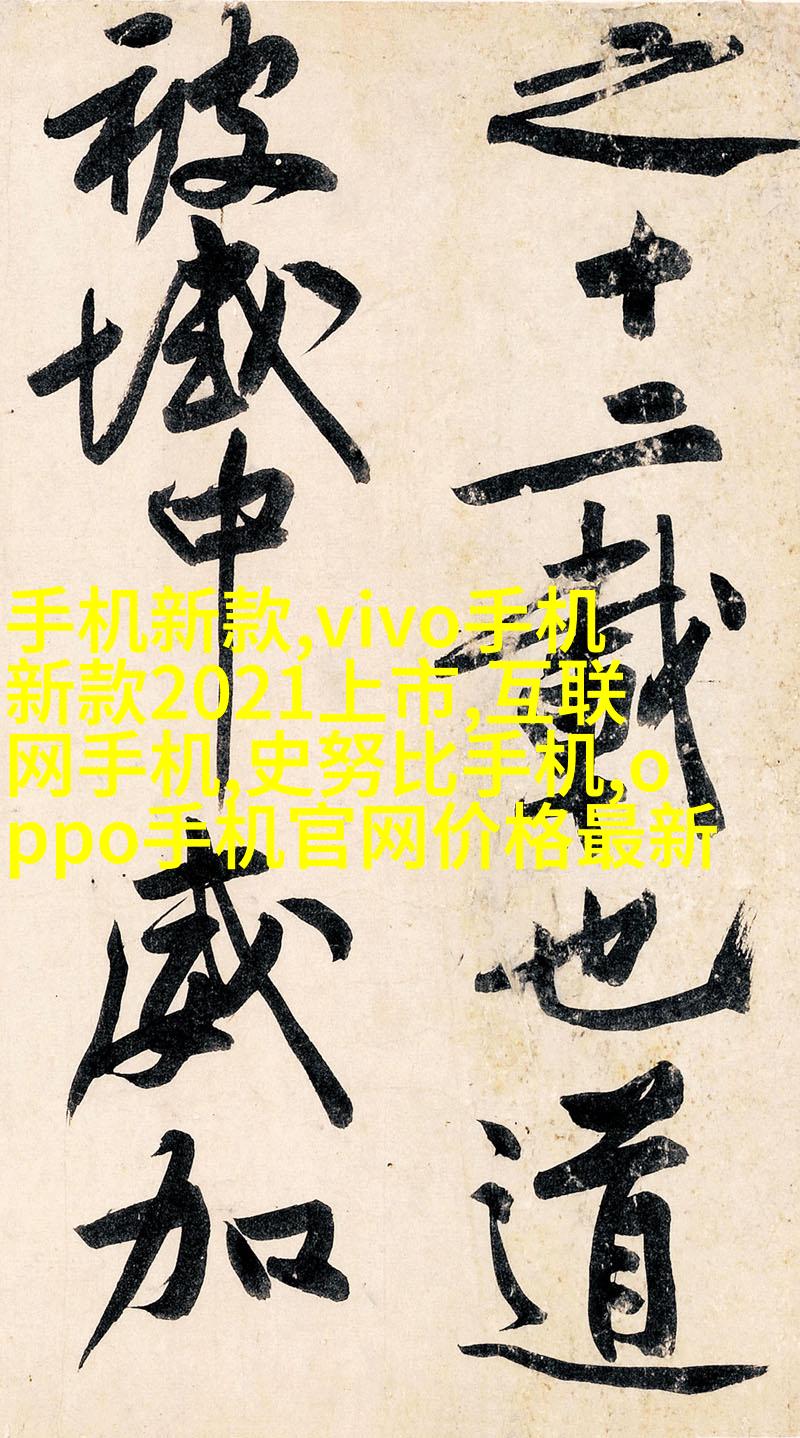 之十二載也道
被域中威加
手机新款,vivo手机
新款2021上市,互联
网手机,史努比手机,o
ppo手机官网价格最新